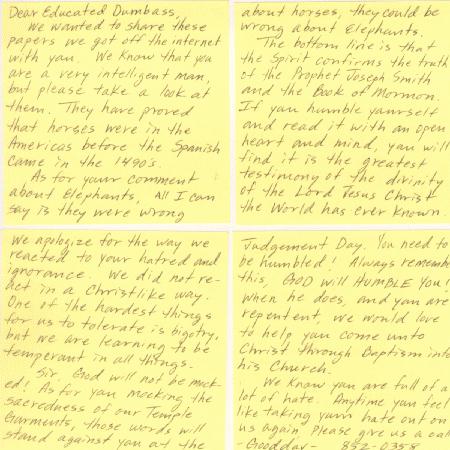 Dear Educated Dumbass,
We wanted to share these
papers we got off the internet
with you. We know that you
are a very intelligent man,
but please take a look at
them. They have proved
that horses were in the
Americas before the Spanish
came in the 1490's.
As for your comment
about Elephants, All I can
say is they were wrong
about horses, they could be
wrong about Elephants.
The bottom line is that
the Spirit confirms the truth
of the Prophet Joseph Smith
and the Book of Mormon.
If you humble yourself
and read it with an open
heart and mind, you will
find it is the greatest
testimony of the divinity
of the Lord Jesus Christ
the World has ever known.
We apologize for the way we
reacted to your hatred and
ignorance. We did not re-
act in a Christlike way.
One of the hardest things
for us to tolerate is bigotry,
but we are learning to be
temperant in all things.
Sir, God will not be mock-
ed! As for you mocking the
sacredness of our Temple
Garments, those words will
stand against you at the
Judgement Day. You need to
be humbled! Always remembe
this, GOD will HUMBLE YOU!
When he does, and you are
repentent, we would love
to help you come unto
Christ through Baptism into
his Church.
We know you are full of a
lot of hate. Anytime you feel
like taking your hate out on
us again, Please give us a call
-Goodday- 852-0358